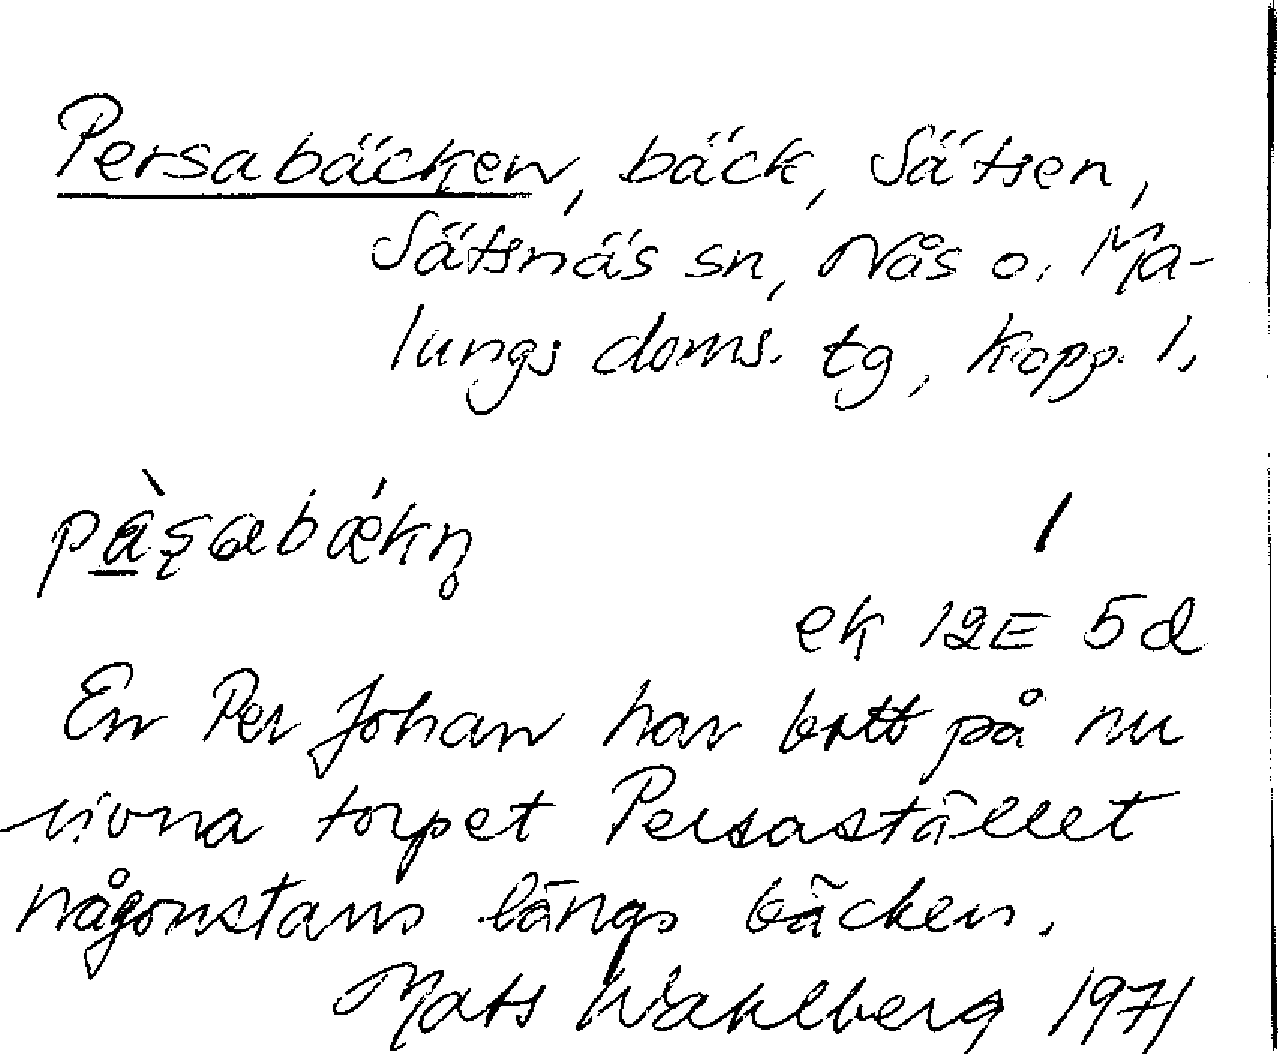 Persabäcken, bäck, Sätsen,
Sätsnäs sn, Nås o. Ma-
lungs doms. tg, Kopp. l.
pàʂabǽkn̥
1
ek 12E 5d
En Per Johan har bott på nu
rivna torpet Persastället
någonstans längs bäcken.
Mats Wahlberg 1971